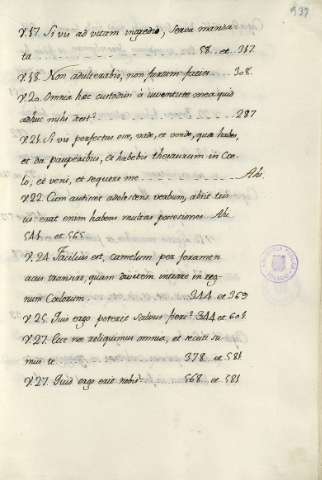 937
V. 17. Si vis ad vitam ingredi, serva manda
ta ........ 58. et 317.
V. 18. Non adulterabis, non furtum facies ... 308.
V. 20. Omnia hæc custodivi à iuventute mea quid
adhuc mihi deest? ........ 287
V. 21. Si vis perfectus esse, vade, et vende, quæ habes,
et da pauperibus, et habebis thesaurum in Coe
lo, et veni, et sequere me ........ Ibi.
V. 22. Cum audisset adolescens verbum, abiit tris
tis erat enim habens multas possesiones. Ibi.
541. et 565.
V. 24. Facilius est, camelum per foramen
acus transire, quam divitem intrare in reg
num Coelorum ........ 344 et 369
V. 25. Quis ergo poterit salvus fieri? 344 et 601.
V. 27. Ecce nos reliquimus omnia, et secuti su
mus te ........ 378 et 581
V. 27. Quid ergo erit nobis? ... 568. et 581